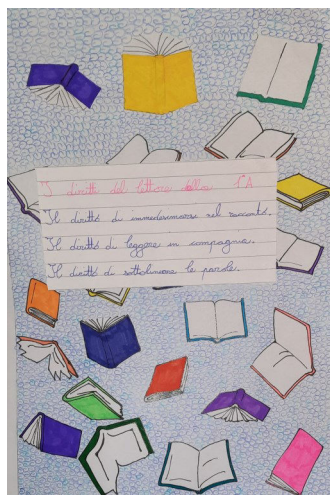 I diritti del lettore della 1ª A
Il diritto di immedesimarsi nel racconto.
Il diritto di leggere in compagnia.
Il diritto di sottolineare le parole.